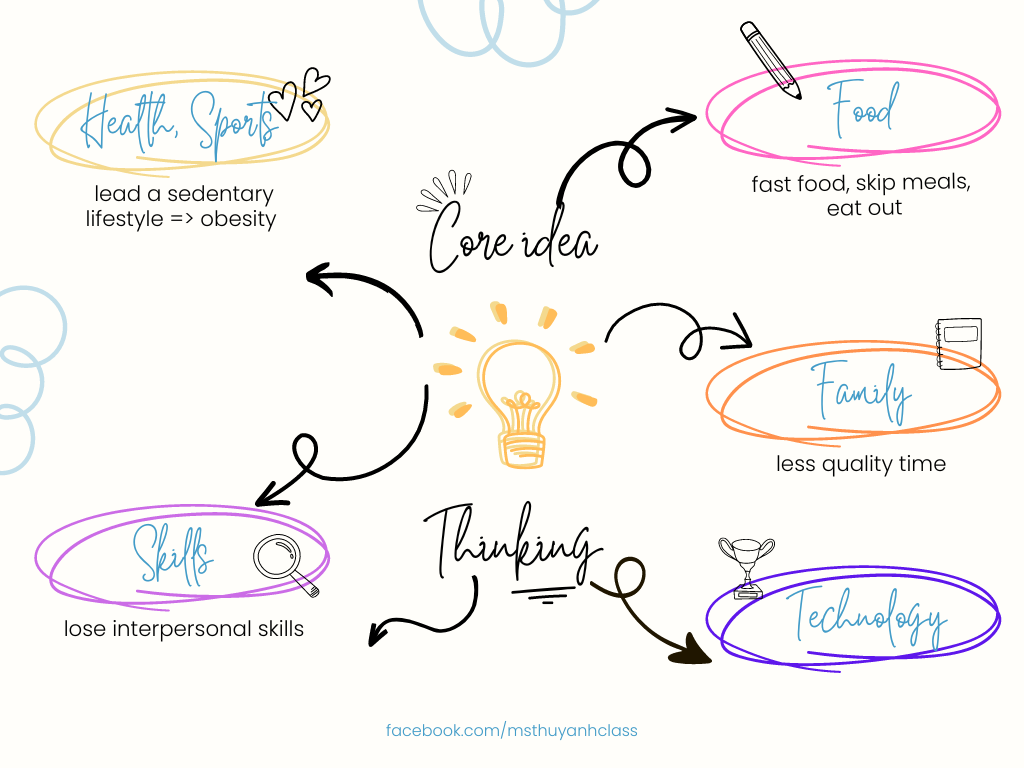 Health, Sports
lead a sedentary
lifestyle => obesity
Food
fast food, skip meals,
eat out
Core idea
Family
less quality time
Skills
lose interpersonal skills
Thinking
Technology
facebook.com/msthuyanhclass